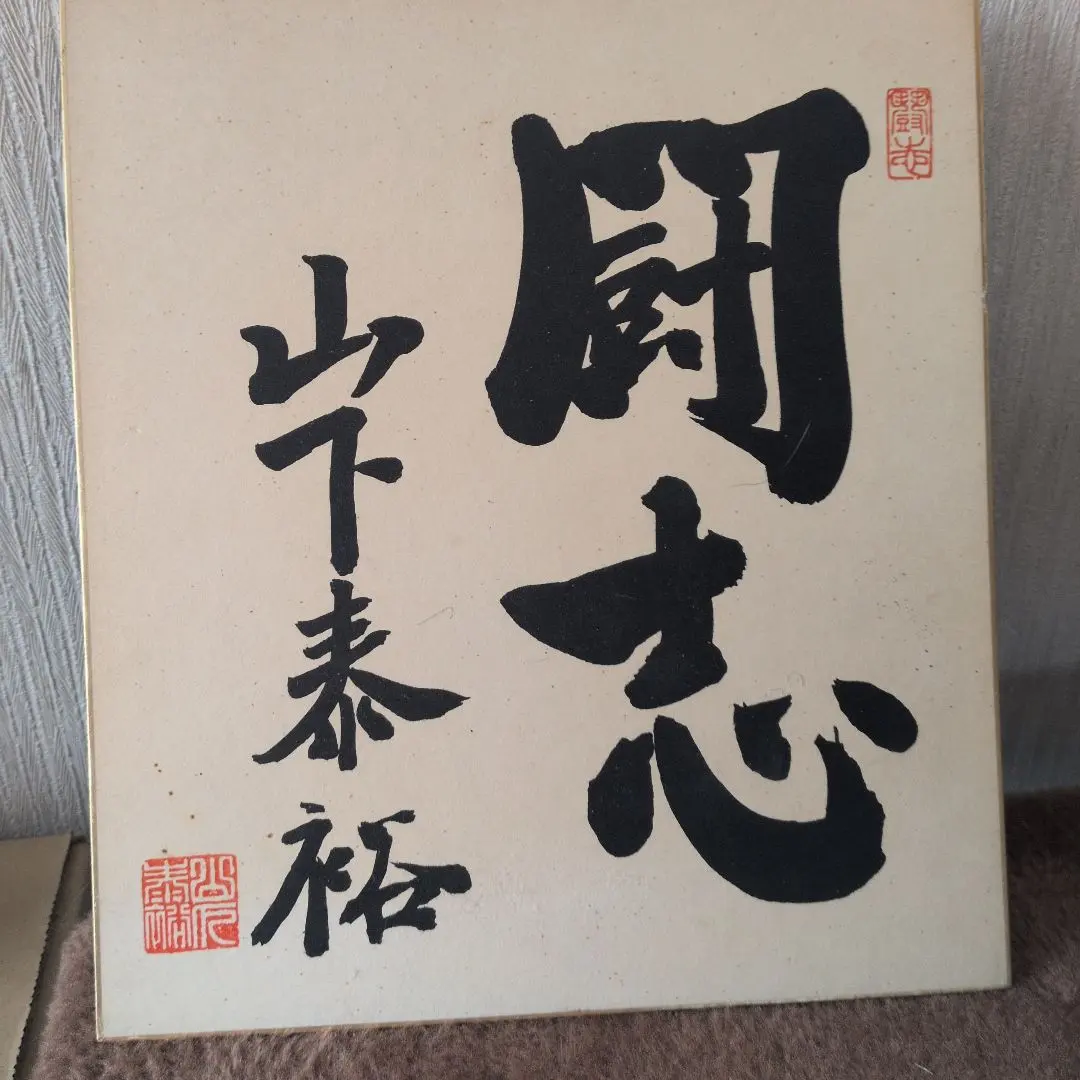 闘志
山下泰裕